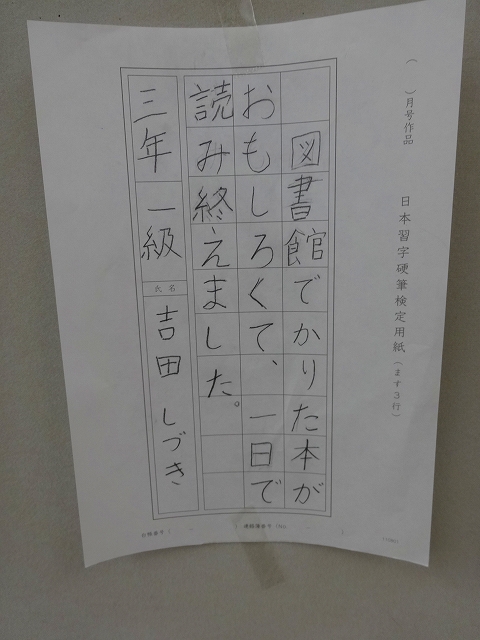 （　　）月号作品
日本習字硬筆検定用紙（ます3行）
図書館でかりた本が
おもしろくて、一日で
読み終えました。
三年 一級
氏名
吉田しづき